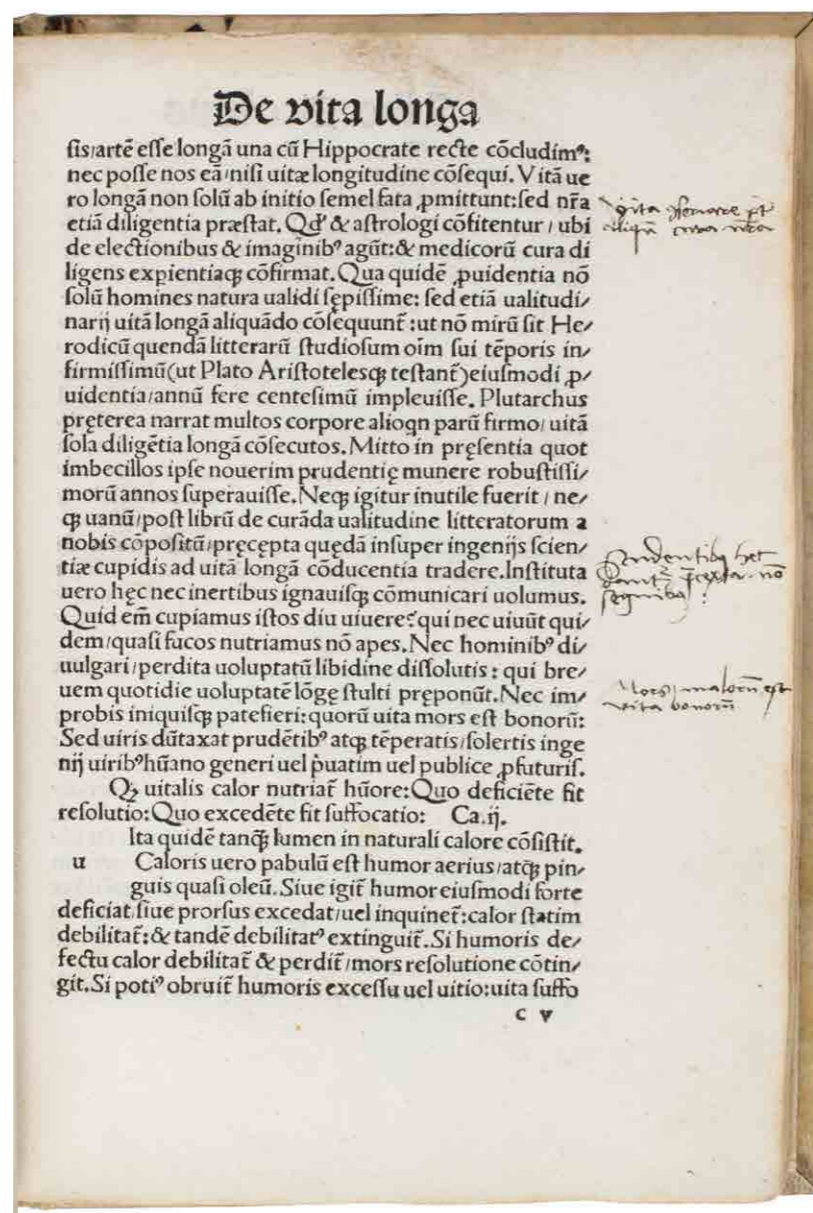 De vita longa
sis/artē esse longā una cū Hippocrate recte cōcludimꝰ:
nec posse nos eā/nisi uitæ longitudine cōsequi. Vitā ue
ro longā non solū ab initio semel fata ꝓmittunt:sed nr̄a
etiā diligentia præstat. Qd' & astrologi cōfitentur / ubi
de electionibus & imaginibꝰ agūt:& medicorū cura di
ligens expientiaqꝫ cōfirmat. Qua quidē ꝓuidentia nō
solū homines natura ualidi sępissime: sed etiā ualitudi/
narij uitā longā aliquādo cōsequunt̃ :ut nō mirū sit He/
rodicū quendā litterarū studiosum oīm sui tēporis in/
firmissimū(ut Plato Aristotelesqꝫ testant̃)eiusmodi ꝓ/
uidentia/annū fere centesimū impleuisse. Plutarchus
pręterea narrat multos corpore alioqn parū firmo/ uitā
sola diligētia longā cōsecutos. Mitto in pręsentia quot
imbecillos ipse nouerim prudentię munere robustissi/
morū annos superauisse. Neqꝫ igitur inutile fuerit / ne/
qꝫ uanū/post librū de curāda ualitudine litteratorum a
nobis cōpositū/pręcępta quędā insuper ingenijs scien/
tiæ cupidis ad uitā longā cōducentia tradere.Instituta
uero hęc nec inertibus ignauisqꝫ cōmunicari uolumus.
Quid em̄ cupiamus istos diu uiuere? qui nec uiuūt qui/
dem/quasi fucos nutriamus nō apes. Nec hominibꝰ di/
uulgari/perdita uoluptatū libidine dissolutis : qui bre/
uem quotidie uoluptatē lōge stulti pręponūt. Nec im/
probis iniquisqꝫ patefieri:quorū uita mors est bonorū:
Sed uiris dūtaxat prudētibꝰ atqꝫ tēperatis/solertis inge
nij uiribꝰhūano generi uel p̓uatim uel publice ꝓfuturis.
Qꝫ uitalis calor nutriat̃ hūore: Quo deficiēte fit
resolutio: Quo excedēte fit suffocatio: Ca.ij.
Ita quidē tanqꝫ̄ lumen in naturali calore cōsistit.
u Caloris uero pabulū est humor aerius/atqꝫ pin/
guis quasi oleū. Siue igit̃ humor eiusmodi forte
deficiat/siue prorsus excedat/uel inquinet̃:calor statim
debilitat̃:& tandē debilitatꝰ extinguit̃. Si humoris de/
fectu calor debilitat̃ & perdit̃/mors resolutione cōtin/
git. Si potiꝰ obruit̃ humoris excessu uel uitio:uita suffo
c v
vita
prudentibꝰ
nō
Mors malorū est
vita bonorū